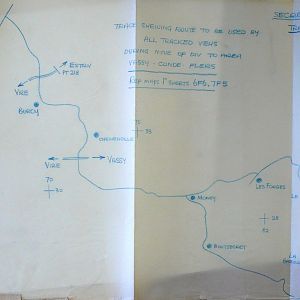 SECRE
TRACE SHEWING ROUTE TO BE USED BY
ALL TRACKED VEHS
DURING MOVE OF DIV TO AREA
VASSY - CONDE - FLERS
REF MAPS 1" SHEETS 6F6, 7F5
ESTRY
PT 218
VIRE
BURCY
75
33
VIRE
VASSY
70
30
LES FORGES
MONCY
28
32
MONTSECRET
LA